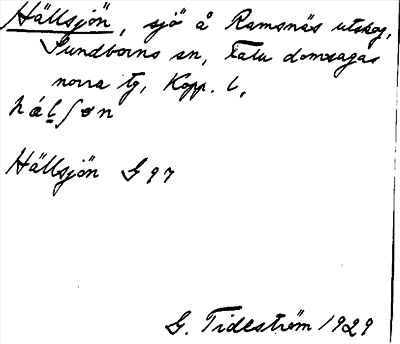 Hällsjön, sjö å Ramsnäs utskog,
Sundborns sn, Falu domsagas
norra tg, Kopp. l,
hálʃøn
Hällsjön G 97
G. Tideström 1929